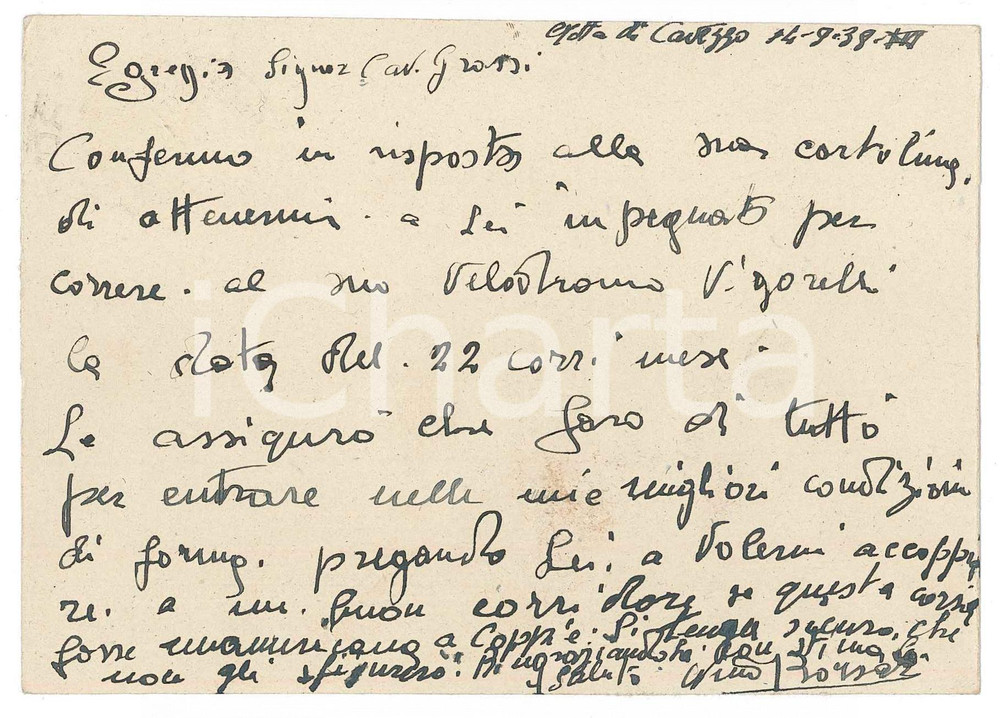 Motta di Cavezzo 14-9-39-XVII
Egregio Signor Cav. Grassi
Confermo in risposta alla sua cartolina,
di attenermi. a Lei impegnato per
correre. al suo Velodromo Vigorelli
la data del. 22 corri mese.
Le assiguro che faro di tutto
per entrare nelle mie migliori condizioni
di forma. pregando Lei. a Volermi accoppi
re. a un. buon corridore se questa corsa
fosse unamericana a Coppie. Si tenga sicuro. che
non gli sfigurero. Ringraziandola con stima
saluti Nino
iCharta